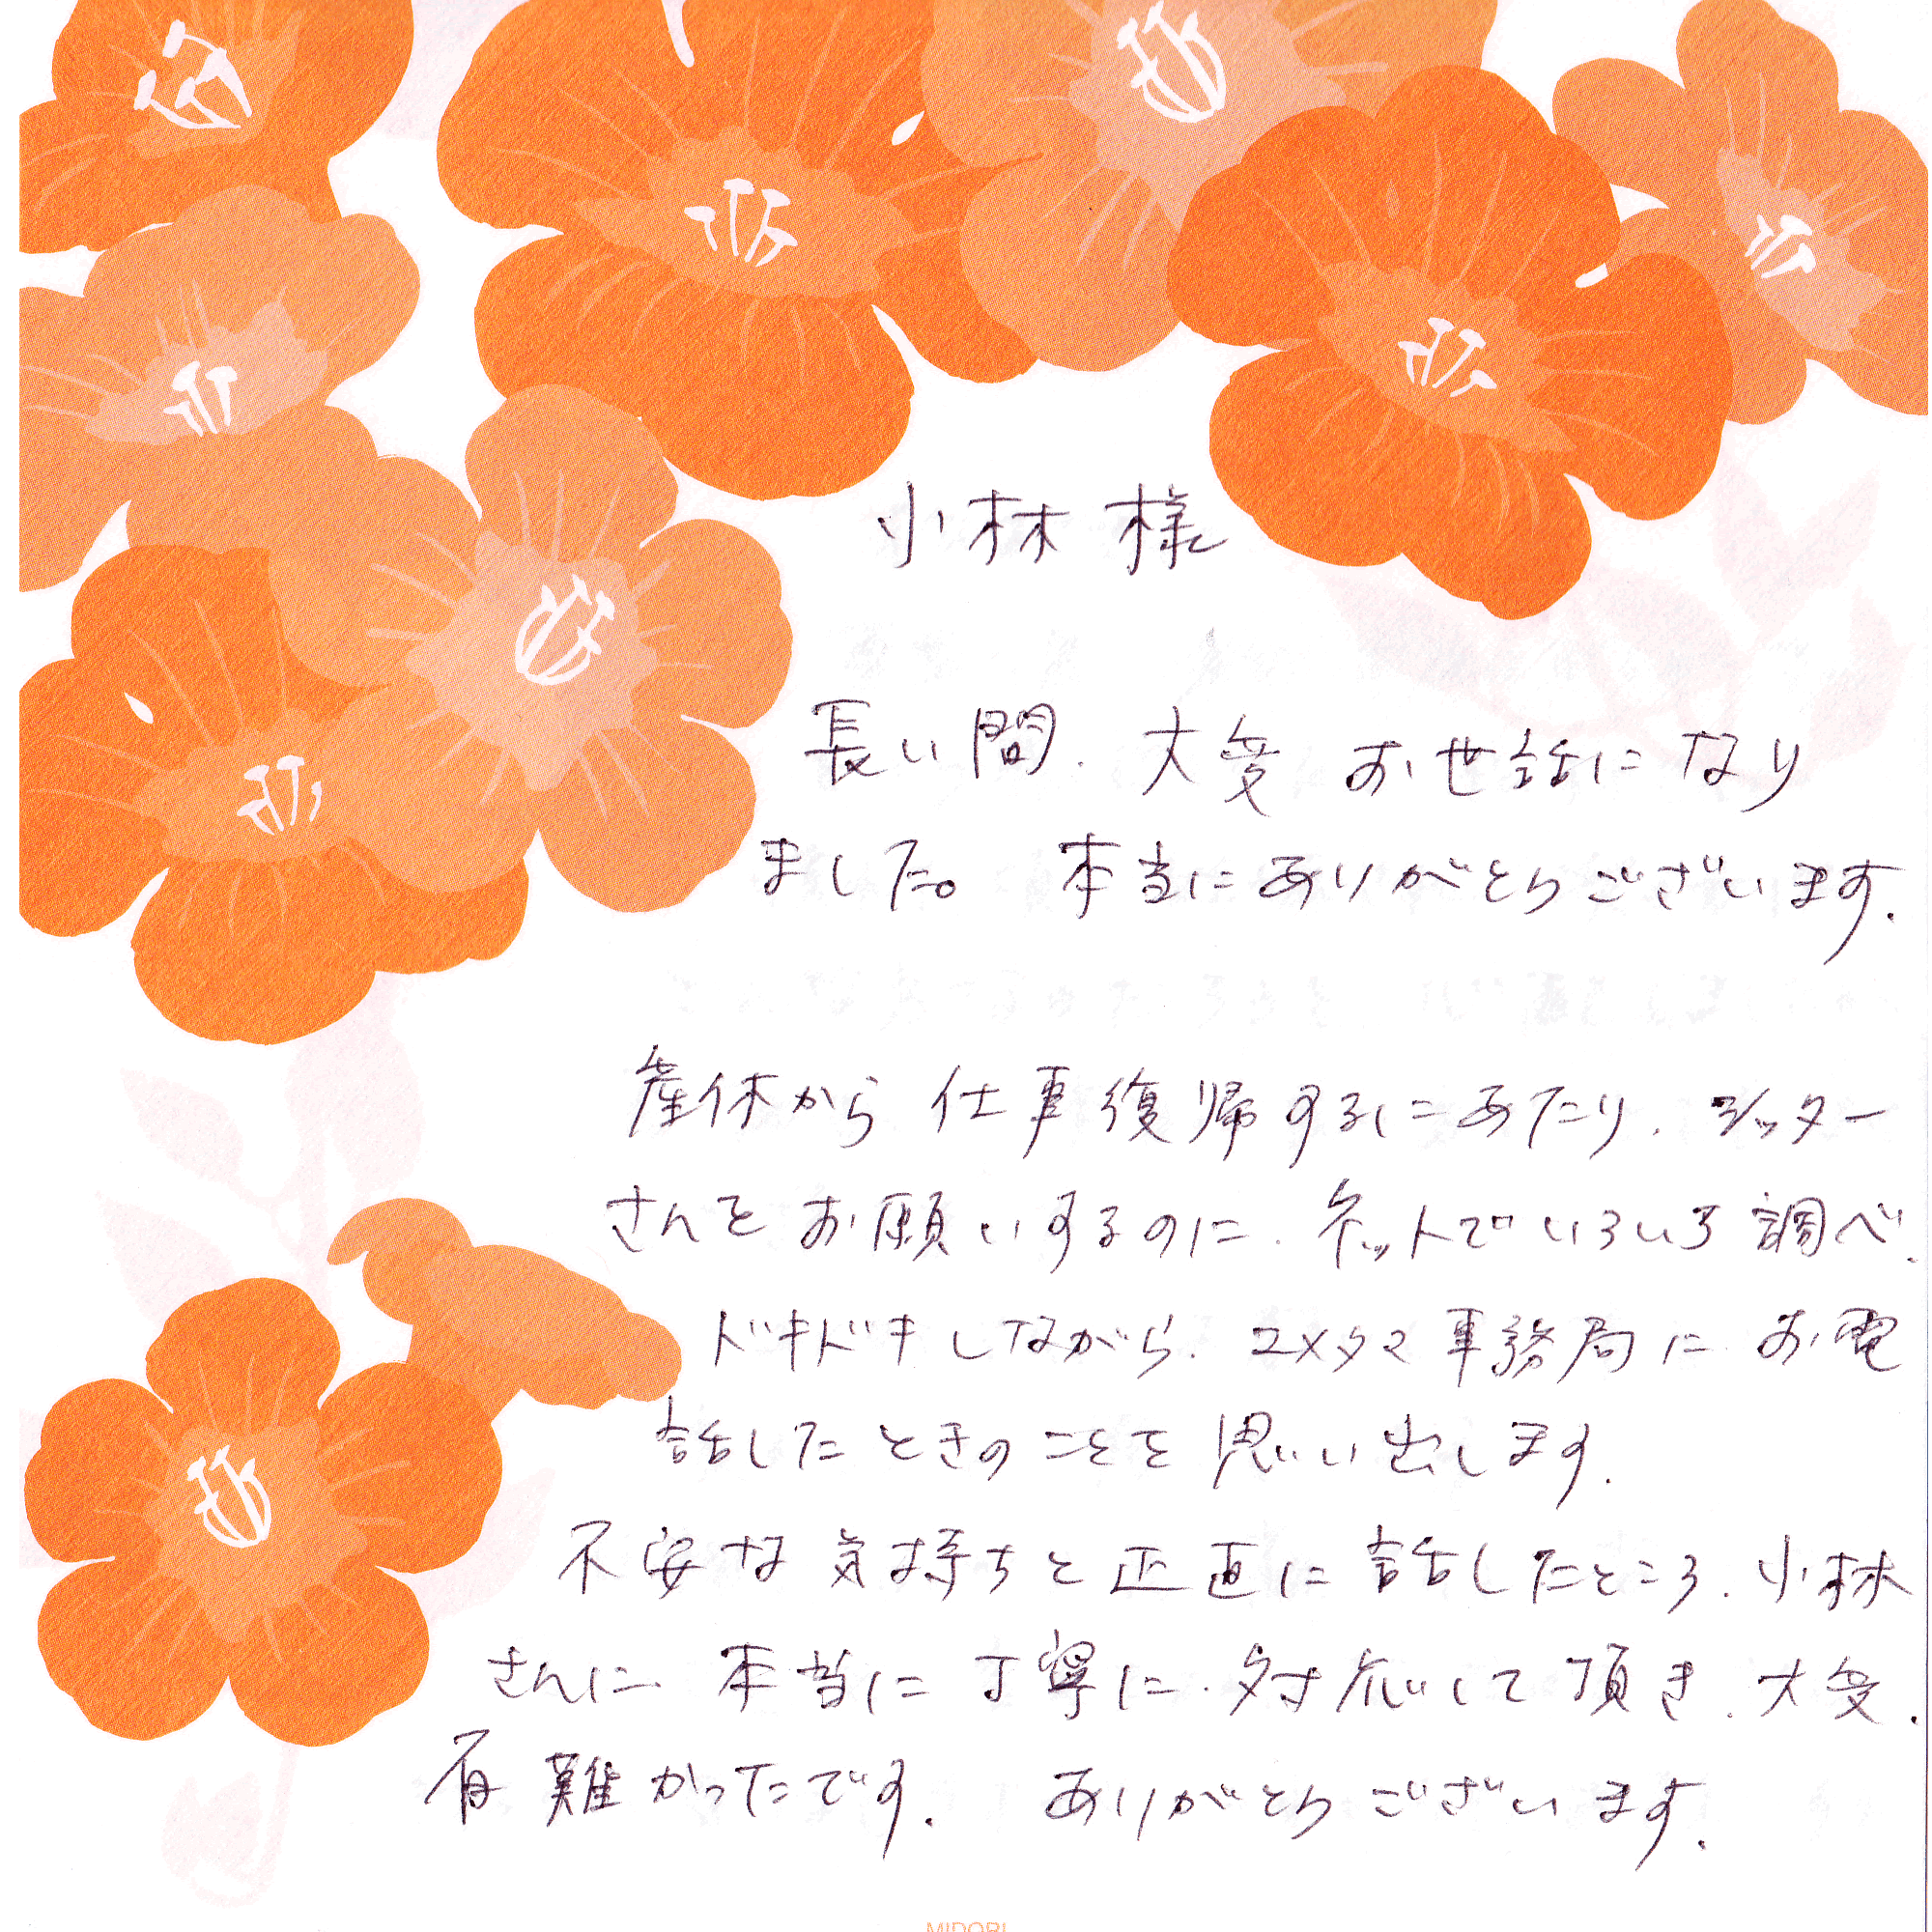 小林 様
長い間、大変 お世話になり
ました。 本当にありがとうございます。
産休から 仕事復帰するにあたり、シッター
さんを お願いするのに、ネットでいろいろ調べ、
ドキドキしながら、ユメタマ事務局に お電
話したときのことを思い出します。
不安な気持ちと正直に話したところ、小林
さんに、本当に丁寧に、対応して頂き、大変、
有難かったです。 ありがとうございます。
MIDORI